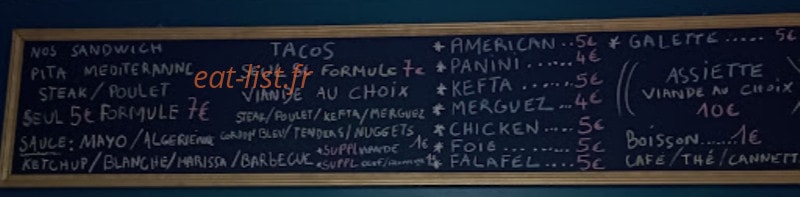 NOS SANDWICH
PITA MEDITERANNE
STEAK/POULET
SEUL 5€ FORMULE 7€
SAUCE: MAYO/ALGERIENNE
KETCHUP/BLANCHE/HARISSA/BARBECUE
TACOS
SEUL 5€ FORMULE 7€
VIANDE AU CHOIX
STEAK/POULET/KEFTA/MERGUEZ
CORDON BLEU/TENDERS/NUGGETS
*SUPPL VIANDE 1€
*SUPPL
* AMERICAN .. 5€
* PANINI ..... 4€
* KEFTA ..... 5€
* MERGUEZ ... 4€
* CHICKEN .... 5€
* FOIE ........ 5€
* FALAFEL .... 5€
* GALETTE ..... 5€
ASSIETTE
VIANDE AU CHOIX
10€
BOISSON ...... 1€
CAFE/THÉ/CANNETT
eat-list.fr